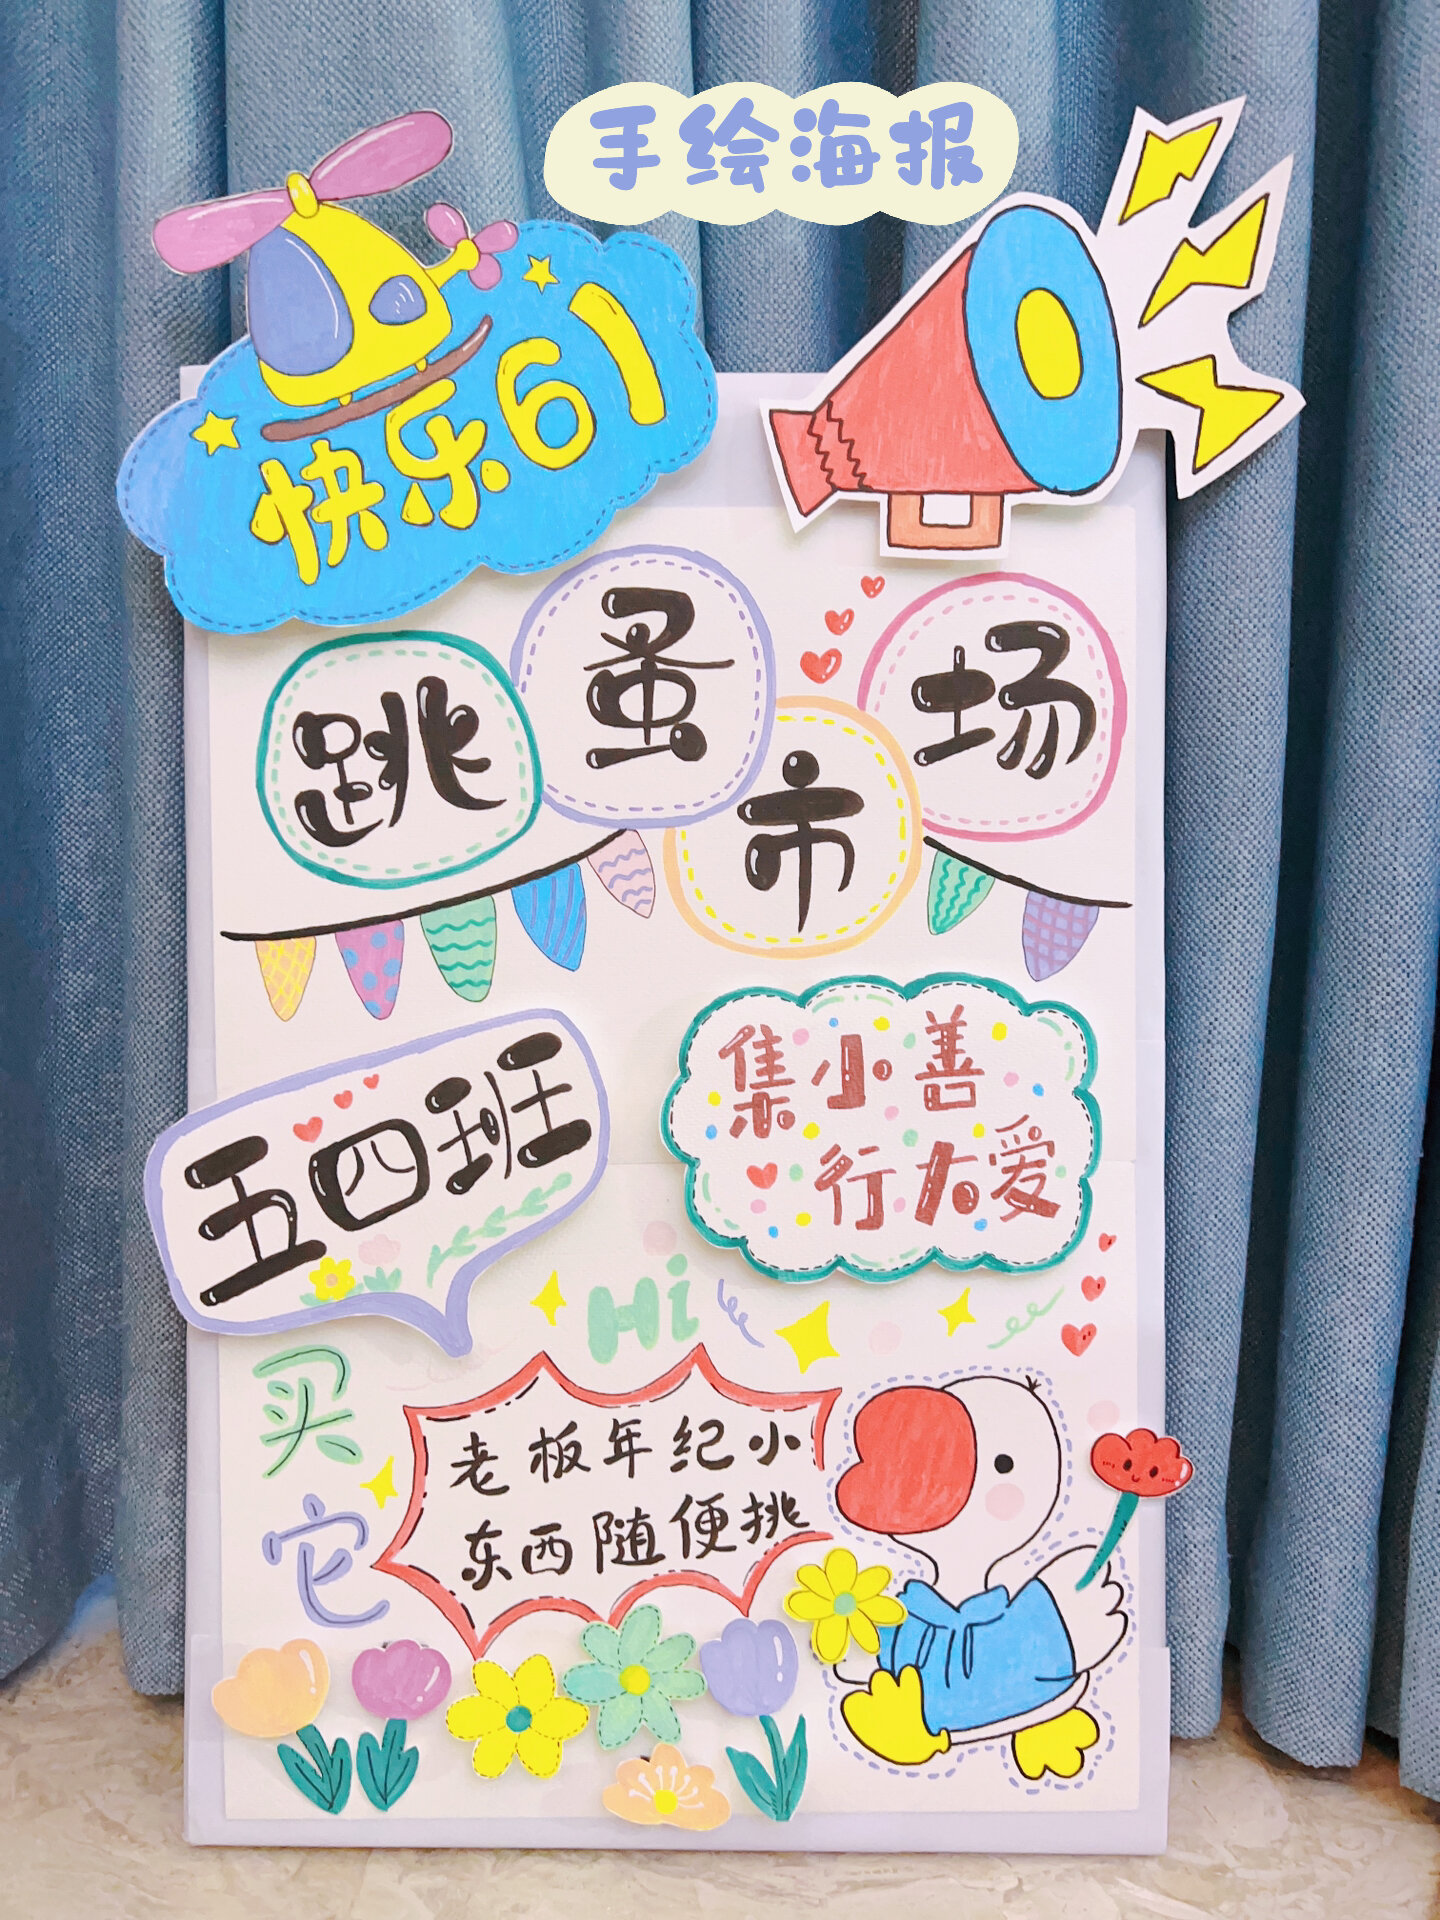 手绘海报
快乐61
跳蚤市场
五四班
集小善
行大爱
Hi
买它
老板年纪小
东西随便挑